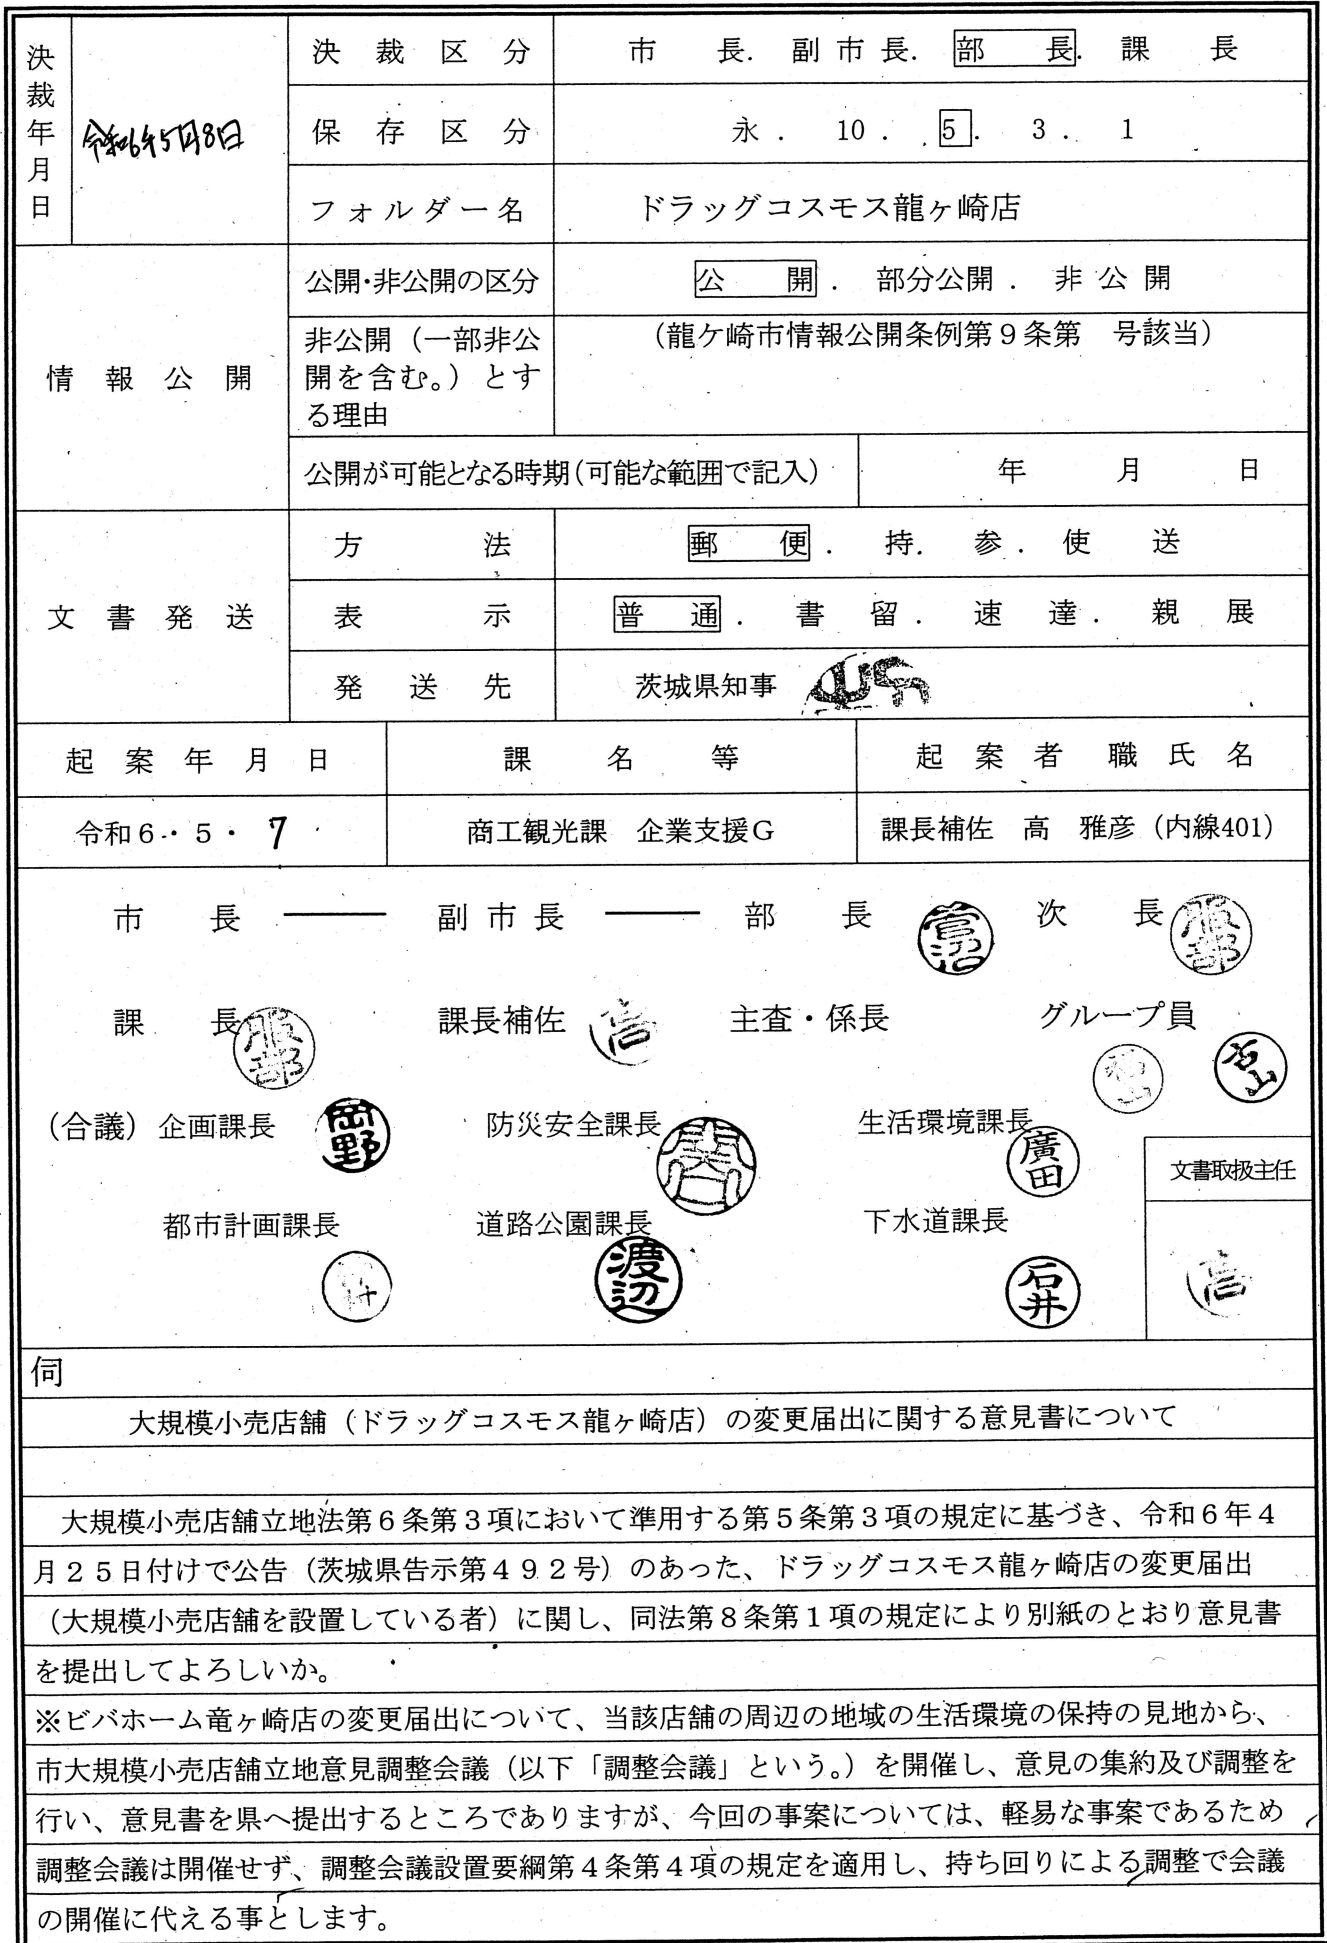 決裁年月日
令和6年5月8日
決裁区分 市長．副市長．部長．課長
保存区分 永．10．5．3．1
フォルダー名 ドラッグコスモス龍ヶ崎店
情報公開
公開・非公開の区分 公開．部分公開．非公開
非公開（一部非公
開を含む。）とす
る理由
（龍ケ崎市情報公開条例第９条第　号該当）
公開が可能となる時期（可能な範囲で記入） 年　月　日
文書発送
方法 郵便．持．参．使送
表示 普通．書留．速達．親展
発送先 茨城県知事
起案年月日 課名等 起案者職氏名
令和６・５・７ 商工観光課　企業支援Ｇ 課長補佐　高　雅彦（内線401）
市長 ― 副市長 ― 部長 菅沼 次長 服部
課長 服部 課長補佐 高 主査・係長 グループ員 石山
（合議）企画課長 岡野 防災安全課長 関 生活環境課長 廣田
文書取扱主任
都市計画課長 道路公園課長 渡辺 下水道課長 石井 高
伺
大規模小売店舗（ドラッグコスモス龍ヶ崎店）の変更届出に関する意見書について
大規模小売店舗立地法第６条第３項において準用する第５条第３項の規定に基づき、令和６年４
月２５日付けで公告（茨城県告示第４９２号）のあった、ドラッグコスモス龍ヶ崎店の変更届出
（大規模小売店舗を設置している者）に関し、同法第８条第１項の規定により別紙のとおり意見書
を提出してよろしいか。
※ビバホーム竜ヶ崎店の変更届出について、当該店舗の周辺の地域の生活環境の保持の見地から、
市大規模小売店舗立地意見調整会議（以下「調整会議」という。）を開催し、意見の集約及び調整を
行い、意見書を県へ提出するところでありますが、今回の事案については、軽易な事案であるため
調整会議は開催せず、調整会議設置要綱第４条第４項の規定を適用し、持ち回りによる調整で会議
の開催に代える事とします。